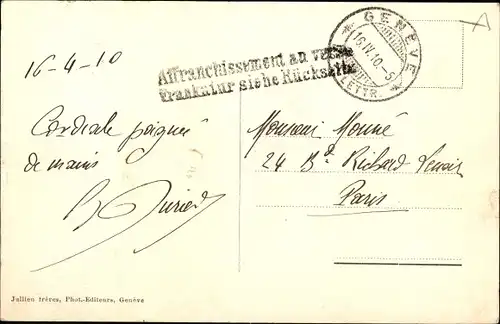 16-4-10
Affranchissement au verso
Frankatur siehe Rückseite
GENÈVE
16.IV.10.-5
LETTR.
Cordiale poignée
de mains
Monsieur Monné
24 Bd. Richard Lenoir
Paris
Jullien frères, Phot.-Editeurs, Genève